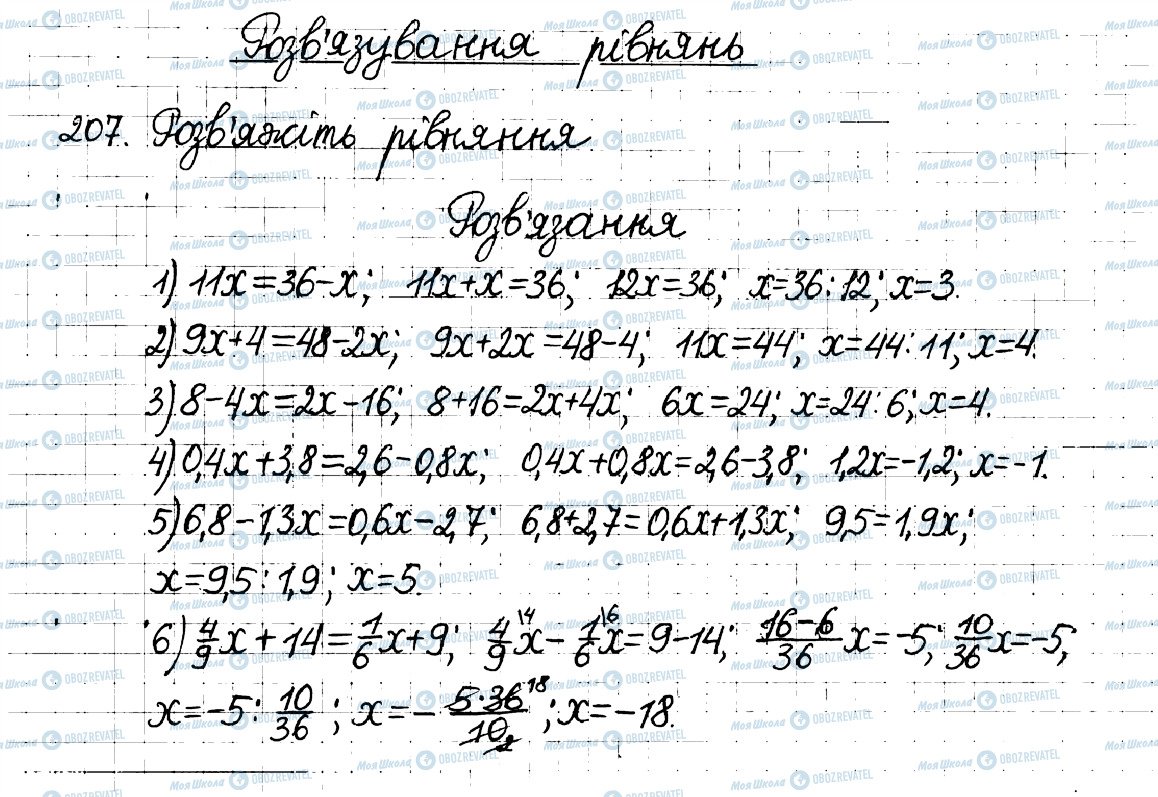 Розв'язування рівнянь
207. Розв'яжіть рівняння.
Розв'язання
1) 11x=36-x; 11x+x=36; 12x=36; x=36:12; x=3.
2) 9x+4=48-2x; 9x+2x=48-4; 11x=44; x=44:11; x=4.
3) 8-4x=2x-16; 8+16=2x+4x; 6x=24; x=24:6; x=4.
4) 0,4x+3,8=2,6-0,8x; 0,4x+0,8x=2,6-3,8; 1,2x=-1,2; x=-1.
5) 6,8-1,3x=0,6x-2,7; 6,8+2,7=0,6x+1,3x; 9,5=1,9x;
x=9,5:1,9; x=5.
6) 4/9 x+14=1/6 x+9; 4/9 \4 x - 1/6 \6 x=9-14; 16-6/36 x=-5; 10/36 x=-5;
x=-5: 10/36; x=- 5·36 18/10 2; x=-18.